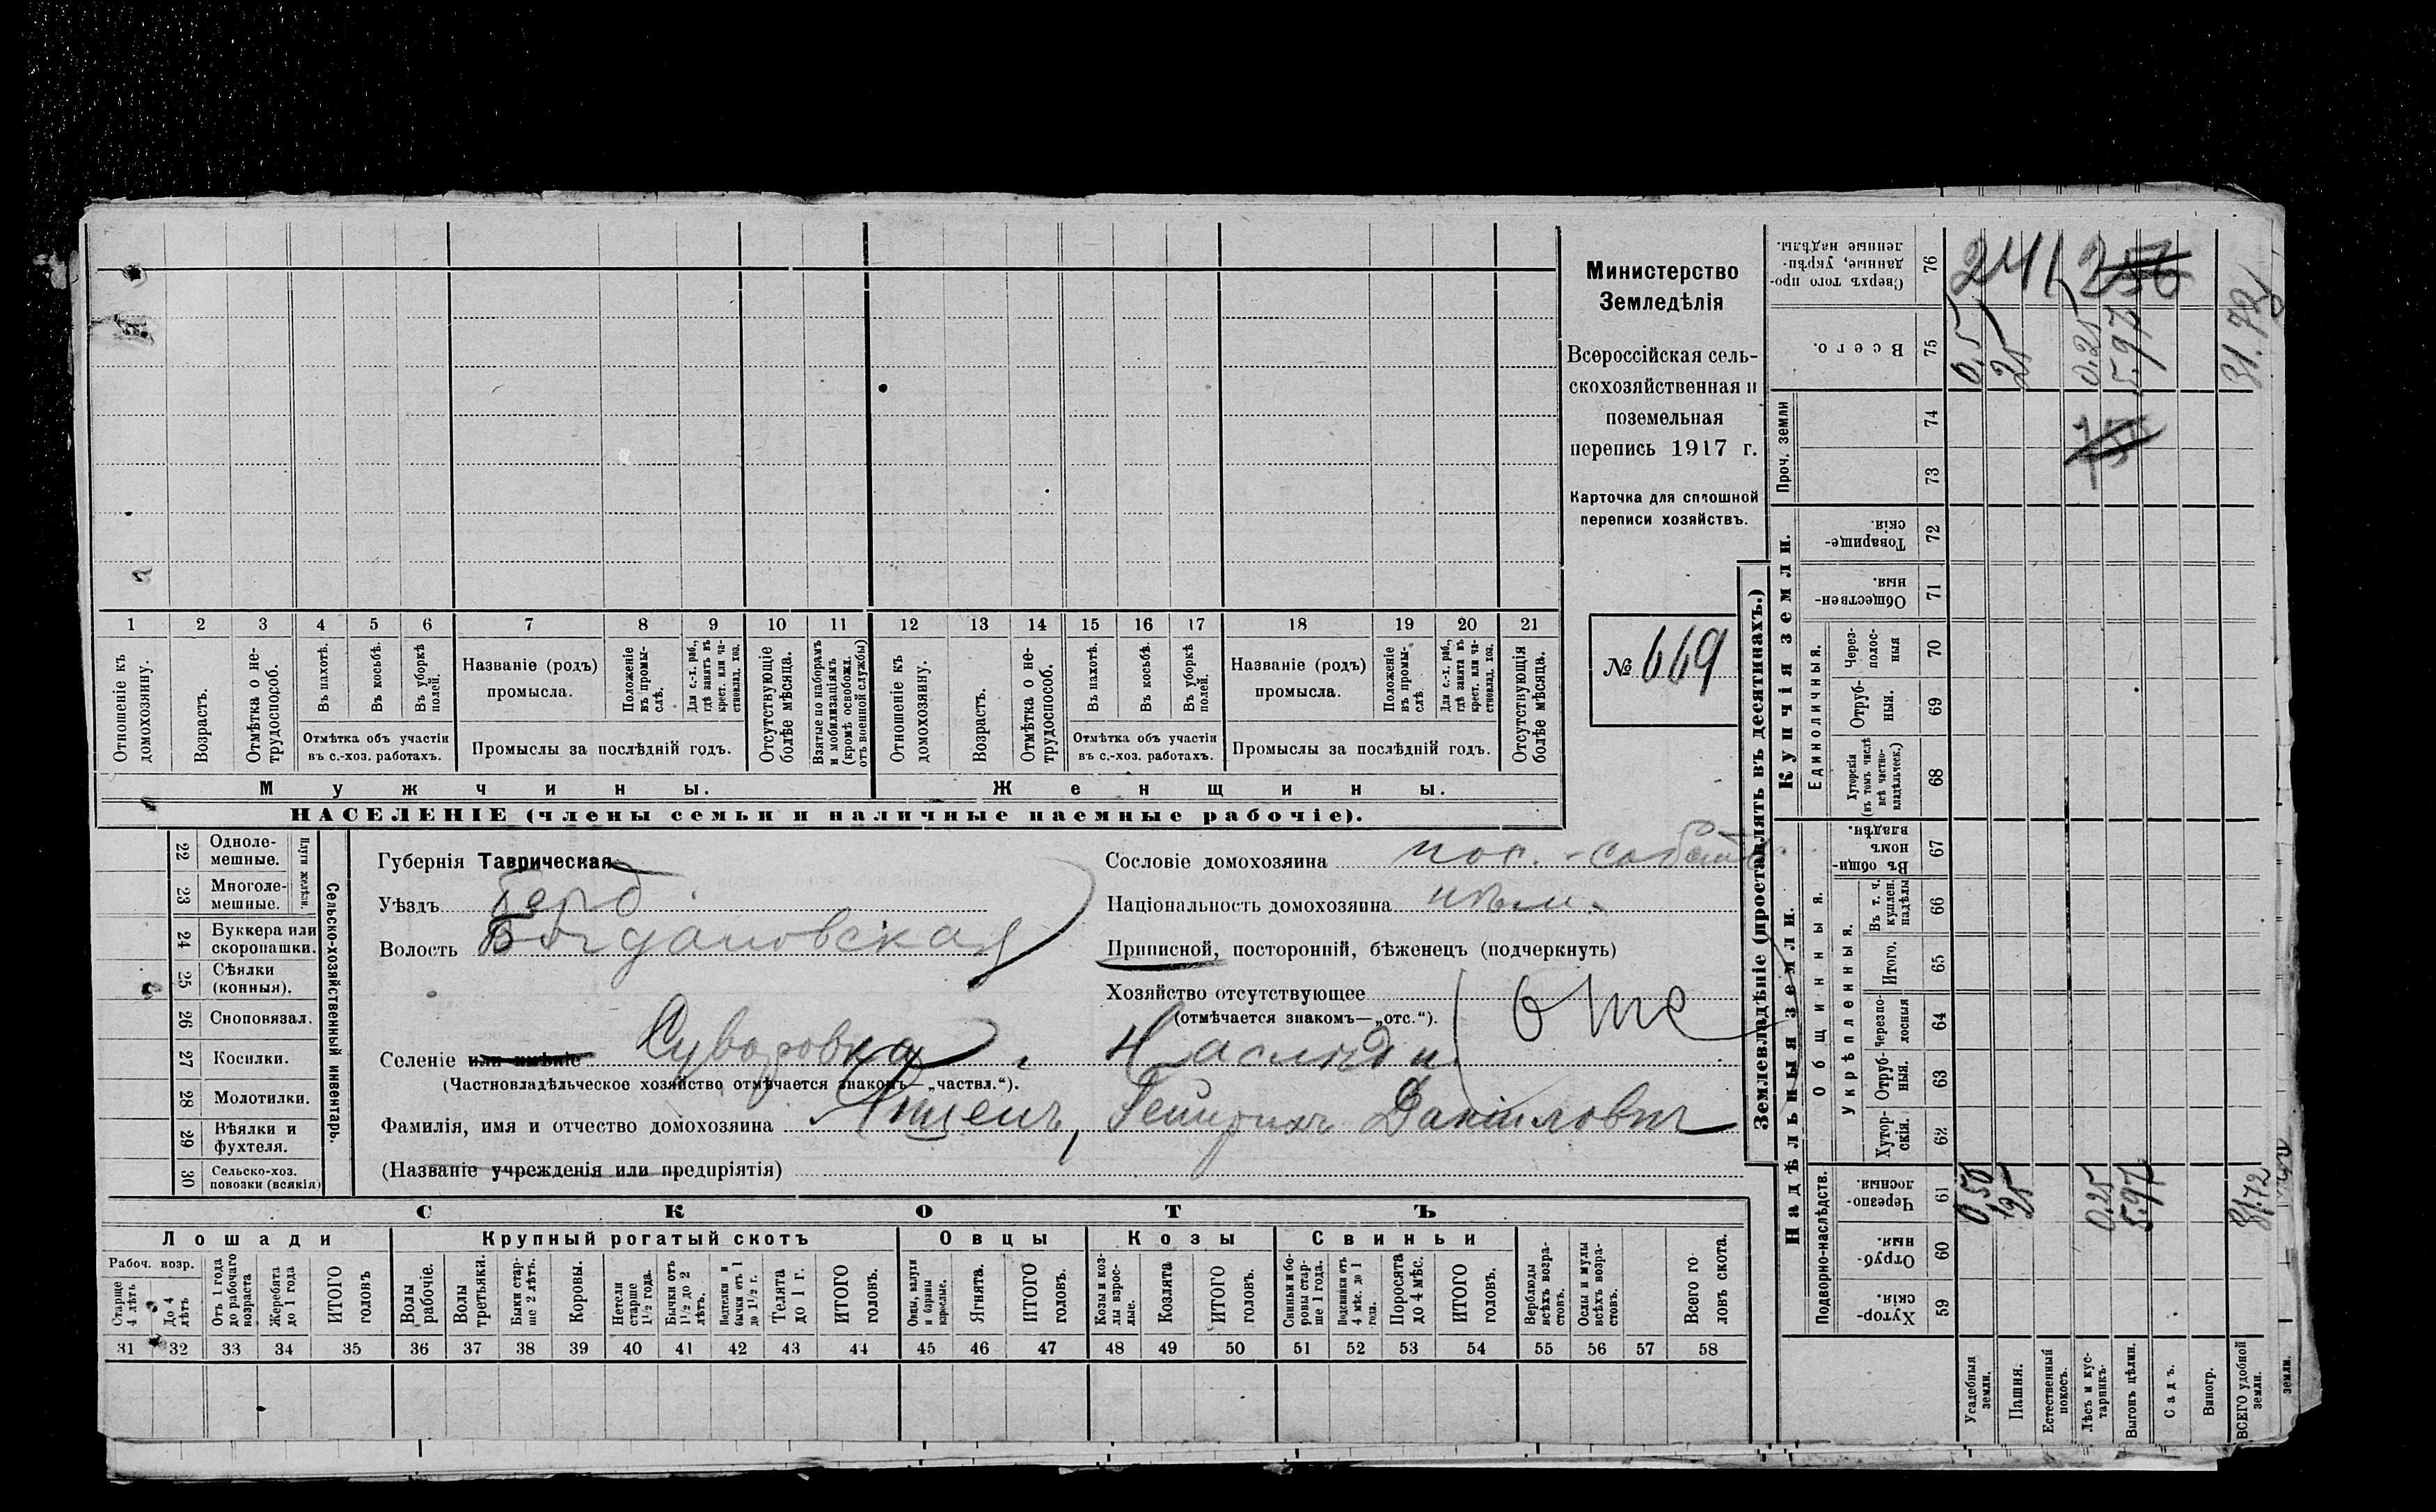 1 2 3 4 5 6 7 8 9 10 11 12 13 14 15 16 17 18 19 20 21
Отношеніе къ домохозяину.
Возрастъ.
Отмѣтка о не-трудоспособ.
Въ пахотѣ.
Въ косьбѣ.
Въ уборкѣ полей.
Отмѣтка объ участіи
въ с.-хоз. работахъ.
Названіе (родъ)
промысла.
Положеніе въ промы-слѣ.
Для с.-х. раб., гдѣ занятъ въ крест. или ча-стновлад. хоз.
Промыслы за послѣдній годъ.
Отсутствующіе болѣе мѣсяца.
Взятые по наборамъ и мобилизаціямъ (кромѣ освобожд. отъ военной службы)
Отношеніе къ домохозяину.
Возрастъ.
Отмѣтка о не-трудоспособ.
Въ пахотѣ.
Въ косьбѣ.
Въ уборкѣ полей.
Отмѣтка объ участіи
въ с.-хоз. работахъ.
Названіе (родъ)
промысла.
Положеніе въ промы-слѣ
Для с.-х. раб., гдѣ занята въ крест. или ча-стновлад. хоз.
Промыслы за послѣдній годъ.
Отсутствующія болѣе мѣсяца.
Мужчины.
Женщины.
НАСЕЛЕНІЕ (члены семьи и наличные наемные рабочіе).
Министерство
Земледѣлія
Всероссійская сель-
скохозяйственная и
поземельная
перепись 1917 г.
Карточка для сплошной
переписи хозяйствъ.
№ 669
22 Одноле-мешные.
23 Многоле-мешные.
Плуги желѣзн.
24 Буккера или скоропашки.
25 Сѣялки (конныя).
26 Сноповязал.
27 Косилки.
28 Молотилки.
29 Вѣялки и фухтеля.
30 Сельско-хоз. повозки (всякія)
Сельско-хозяйственный инвентарь.
Губернія Таврическая
Уѣздъ Берд
Волость Богдановская
Селеніе или имѣніе Суворовка
(Частновладѣльческое хозяйство отмѣчается знакомъ—„частвл.“).
Сословіе домохозяина пос. - собств.
Національность домохозяина нѣм.
Приписной, посторонній, бѣженецъ (подчеркнуть)
Хозяйство отсутствующее отс
(отмѣчается знакомъ—„отс.“).
Наслѣдн.
Фамилія, имя и отчество домохозяина Генрихъ Данилович
(Названіе учрежденія или предпріятія)
СКОТЪ
Лошади
Крупный рогатый скотъ
Овцы
Козы
Свиньи
Рабоч. возр.
Старше 4 лѣтъ
До 4 лѣтъ
Отъ 1 года до рабочаго возраста
Жеребята до 1 года
ИТОГО головъ
Волы рабочіе.
Волы третьяки.
Быки стар-ше 2 лѣтъ.
Коровы.
Нетели старше 1½ года.
Бычки отъ 1½ до 2 лѣтъ.
Подтелки и бычки отъ 1 до 1½ г.
Телята до 1 г.
ИТОГО головъ.
Овцы, валухи и бараны взрослые.
Ягнята.
ИТОГО головъ.
Козы и коз-лы взрос-лые.
Козлята
ИТОГО головъ.
Свиньи и бо-ровы стар-ше 1 года.
Подсвинки отъ 4 мѣс. до 1 года.
Поросята до 4 мѣс.
ИТОГО головъ.
Верблюды всѣхъ возра-стовъ.
Ослы и мулы всѣхъ возра-стовъ.
Всего го-ловъ скота.
31 32 33 34 35 36 37 38 39 40 41 42 43 44 45 46 47 48 49 50 51 52 53 54 55 56 57 58
Землевладѣніе (проставлять въ десятинахъ.)
Надѣльныя земли.
Купчія земли.
Проч. земли
Подворно-наслѣдств.
Общинныя.
Укрѣпленныя.
Единоличныя.
Хутор-скія. 59
Отруб-ныя. 60
Черезпо-лосныя. 61
Хутор-скія. 62
Отруб-ныя. 63
Черезпо-лосныя 64
Итого. 65
Въ т. ч. куплен. надѣлы 66
Въ общи-номъ владѣн. 67
Хуторскія (въ томъ числѣ всѣ частно-владѣльческ.) 68
Отруб-ныя. 69
Через-полос-ныя 70
Обществен-ныя. 71
Товарище-скія. 72
73
74
Всего. 75
Сверхъ того про-данные, укрѣп-ленные надѣлы. 76
Усадебныя земли. 0,50 0,5
Пашня. 25 25
Естественный покосъ.
Лѣсъ и кус-тарникъ. 0.25 0.25
Выгонъ цѣлин. 5.97 5.97
Садъ.
Виногр.
ВСЕГО удобной земли. 31.72 31.72
земли.
241
256